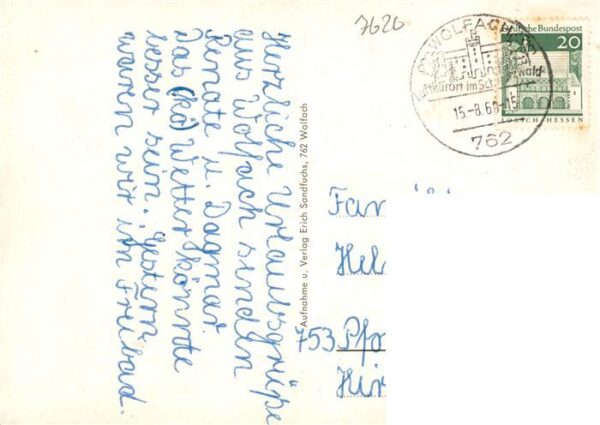 7620
WOLFACH
kurort im Sch
wald
15.-8.68-15
762
Deutsche Bundespost
20
LORSCH/HESSEN
Herzliche Urlaubsgrüße
aus Wolfach senden
Renate u. Dagmar.
Das Wetter könnte
besser sein. Gestern
waren wir im Freibad.
Aufnahme u. Verlag Erich Sandfuchs, 762 Wolfach
Fam
Hel
753 Pfo
Hir